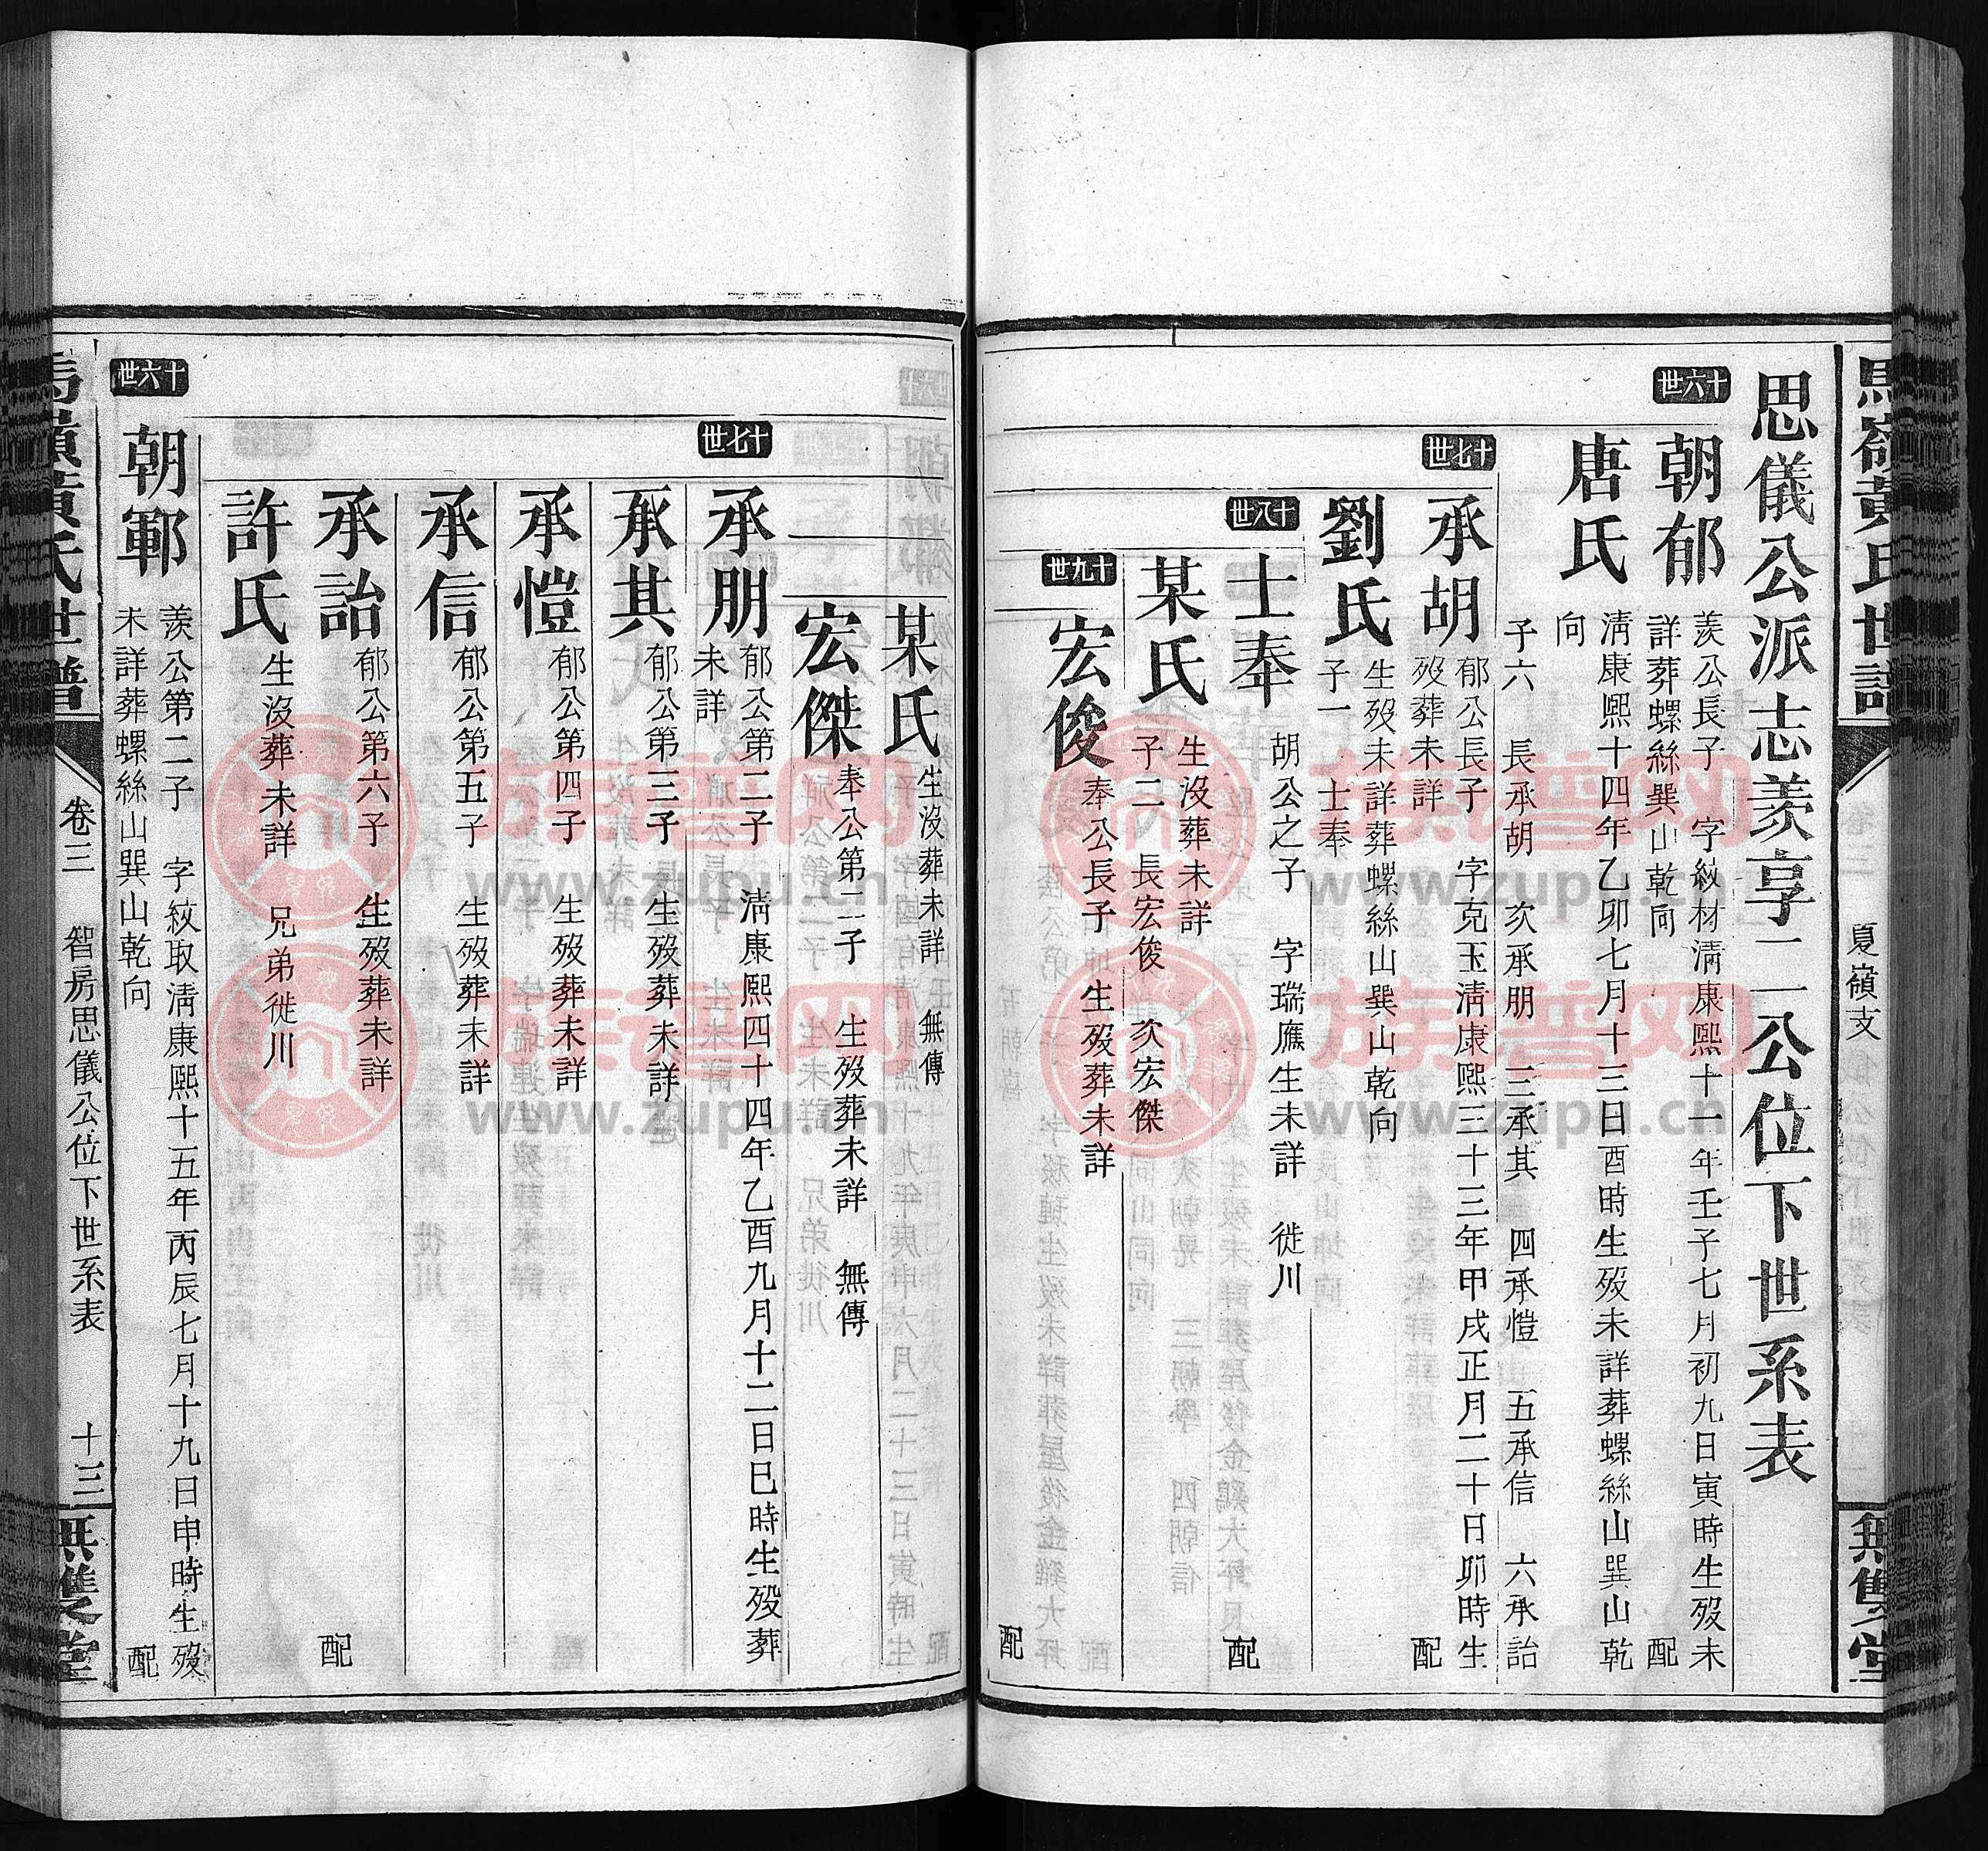 馬嶺黃氏世譜
夏嶺支
無雙堂
思儀公派志羨享二公位下世系表
十六世
朝郁
羨公長子　字紋材淸康熙十一年壬子七月初九日寅時生歿未
詳葬螺絲山巽山乾向　配
唐氏
淸康熙十四年乙卯七月十三日酉時生歿未詳葬螺絲山巽山乾
向
子六　長承胡　次承朋　三承其　四承愷　五承信　六承詒
十七世
承胡
郁公長子　字克玉淸康熙三十三年甲戌正月二十日卯時生
歿葬未詳　配
劉氏
生歿未詳葬螺絲山巽山乾向
子一　士奉
十八世
士奉
胡公之子　字瑞應生未詳　徙川
配
某氏
生沒葬未詳
子二　長宏俊　次宏傑
十九世
宏俊
奉公長子　生歿葬未詳
配
某氏
生沒葬未詳　無傳
宏傑
奉公第二子　生歿葬未詳　無傳
十七世
承朋
郁公第二子　淸康熙四十四年乙酉九月十二日巳時生歿葬
未詳
承其
郁公第三子　生歿葬未詳
承愷
郁公第四子　生歿葬未詳
承信
郁公第五子　生歿葬未詳
承詒
郁公第六子　生歿葬未詳
配
許氏
生沒葬未詳　兄弟徙川
十六世
朝鄆
羨公第二子　字紋取淸康熙十五年丙辰七月十九日申時生歿
未詳葬螺絲山巽山乾向　配
馬嶺黃氏世譜
卷三　智房思儀公位下世系表　十三
無雙堂
族譜网
www.zupu.cn
族譜网
www.zupu.cn
族譜网
www.zupu.cn
族譜网
www.zupu.cn